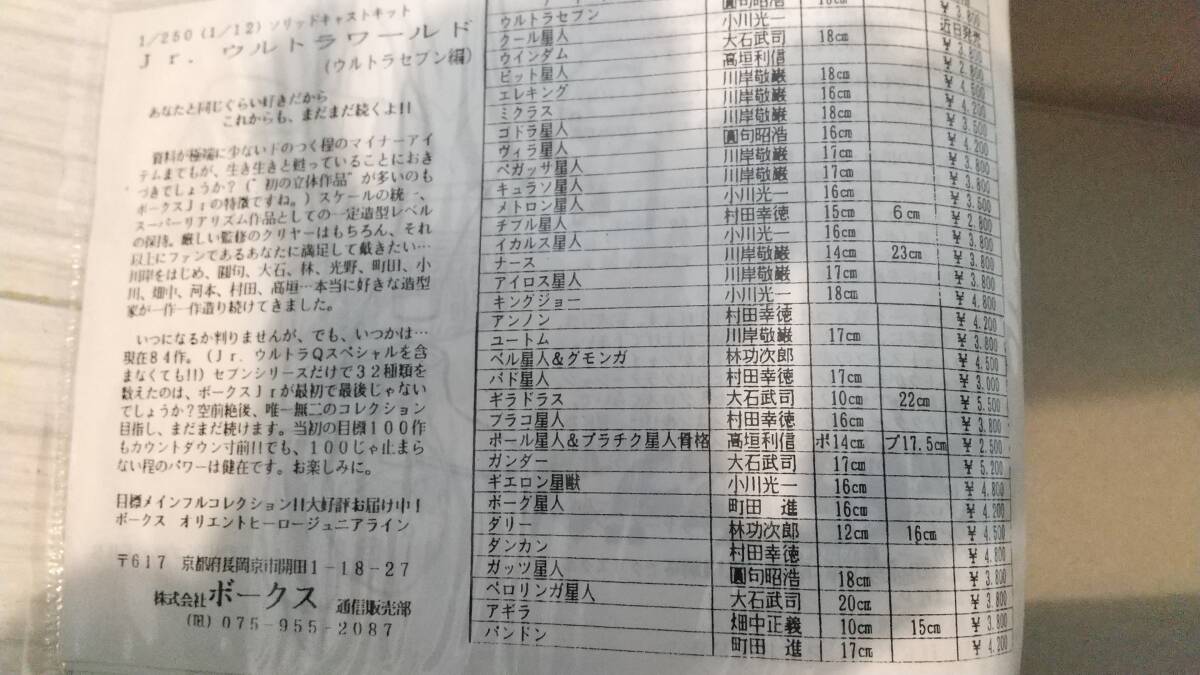 1/250(1/12)ソリッドキャストキット
Jr. ウルトラワールド
(ウルトラセブン編)
あなたと同じぐらい好きだから
これからも、まだまだ続くよ!!
資料が極端に少ないドのつく程のマイナーアイ
テムまでもが、生き生きと甦っていることにおき
づきでしょうか?(“初の立体作品”が多いのも
ボークスJrの特徴ですね。)スケールの統一、
スーパーリアリズム作品としての一定造型レベル
の保持。厳しい監修のクリヤーはもちろん、それ
以上にファンであるあなたに満足して戴きたい…
川岸をはじめ、圓句、大石、林、光野、町田、小
川、畑中、河本、村田、高垣…本当に好きな造型
家が一作一作造り続けてきました。
いつになるか判りませんが、でも、いつかは…
現在84作。(Jr. ウルトラQスペシャルを含
まなくても!!)セブンシリーズだけで32種類を
数えたのは、ボークスJrが最初で最後じゃない
でしょうか?空前絶後、唯一無二のコレクション
目指し、まだまだ続けます。当初の目標100作
もカウントダウン寸前!!でも、100じゃ止まら
ない程のパワーは健在です。お楽しみに。
目標メインフルコレクション!!大好評お届け中!
ボークス オリエントヒーロージュニアライン
〒617 京都府長岡京市開田1-18-27
株式会社ボークス 通信販売部
(℡) 075-955-2087
ウルトラセブン 圓句昭浩 16cm ¥3.800
クール星人 小川光一 近日発売
ウインダム 大石武司 18cm ¥3.800
ピット星人 高垣利信 ¥2.800
エレキング 川岸敬巌 18cm ¥4.800
ミクラス 川岸敬巌 16cm ¥4.200
ゴドラ星人 川岸敬巌 18cm ¥3.500
ヴィラ星人 圓句昭浩 16cm ¥4.200
ペガッサ星人 川岸敬巌 17cm ¥3.800
キュラソ星人 川岸敬巌 17cm ¥3.800
メトロン星人 小川光一 16cm ¥3.500
チブル星人 村田幸徳 15cm 6cm ¥2.800
イカルス星人 小川光一 16cm ¥3.800
ナース 川岸敬巌 14cm 23cm ¥3.800
アイロス星人 川岸敬巌 17cm ¥3.800
キングジョー 小川光一 18cm ¥4.800
アンノン 村田幸徳 ¥4.200
ユートム 川岸敬巌 17cm ¥3.800
ベル星人&グモンガ 林功次郎 ¥4.500
バド星人 村田幸徳 17cm ¥3.000
ギラドラス 大石武司 10cm 22cm ¥5.500
プラコ星人 村田幸徳 16cm ¥3.800
ポール星人&プラチク星人骨格 高垣利信 ポ14cm プ17.5cm ¥2.500
ガンダー 大石武司 17cm ¥5.200
ギエロン星獣 小川光一 16cm ¥4.800
ボーグ星人 町田 進 16cm ¥4.200
ダリー 林功次郎 12cm 16cm ¥4.500
ダンカン 村田幸徳 ¥4.800
ガッツ星人 圓句昭浩 18cm ¥3.800
ペロリンガ星人 大石武司 20cm ¥3.800
アギラ 畑中正義 10cm 15cm ¥3.800
パンドン 町田 進 17cm ¥4.200